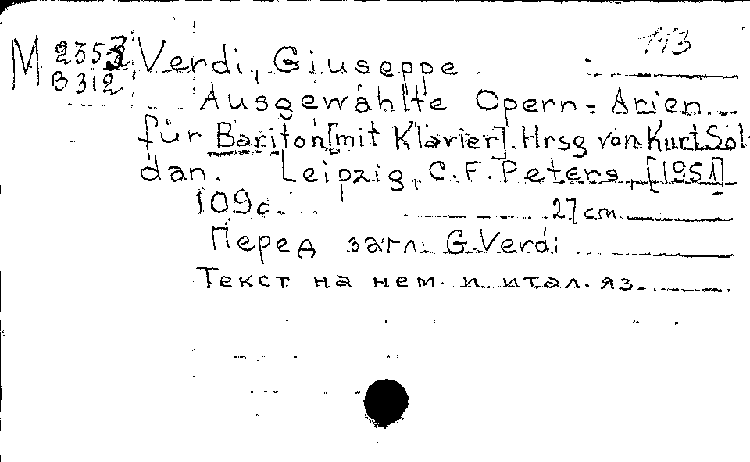 113
M 2353 Verdi, Giuseppe
B 312
Ausgewählte Opern-Arien
für Bariton [mit Klavier]. Hrsg von Kurt Sol-
dan. Leipzig, C. F. Peters, [1951]
109 с. 27 cm.
Перед загл. G. Verdi
Текст на нем. и итал. яз.